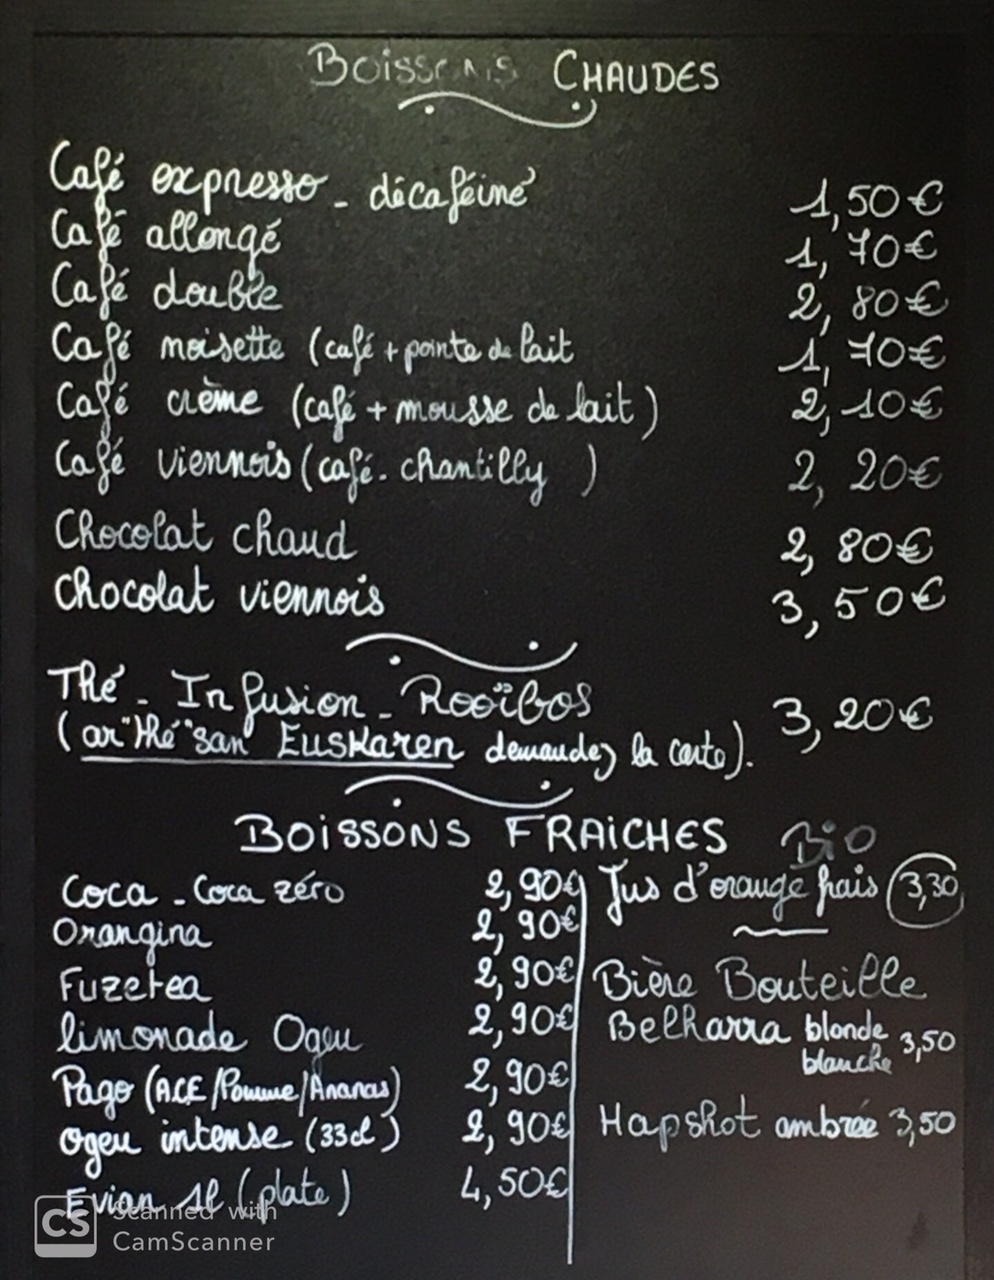 Boissons CHAUDES
Café expresso - décaféiné 1,50€
Café allongé 1,70€
Café double 2,80€
Café noisette (café + pointe de lait 1,70€
Café crème (café + mousse de lait) 2,10€
Café viennois (café - chantilly ) 2,20€
Chocolat chaud 2,80€
Chocolat viennois 3,50€
Thé - Infusion - Rooïbos 3,20€
(ar"thé"san Euskaren demandez la carte).
BOISSONS FRAICHES
Coca - Coca zéro 2,90€
Orangina 2,90€
Fuzetea 2,90€
limonade Ogeu 2,90€
Pago (ACE/Pomme/Ananas) 2,90€
Ogeu intense (33cl) 2,90€
Evian 1l (plate) 4,50€
Bio
Jus d'orange frais 3,30
Bière Bouteille
Belharra blonde 3,50
blanche
Hapshot ambrée 3,50
CS Scanned with
CamScanner